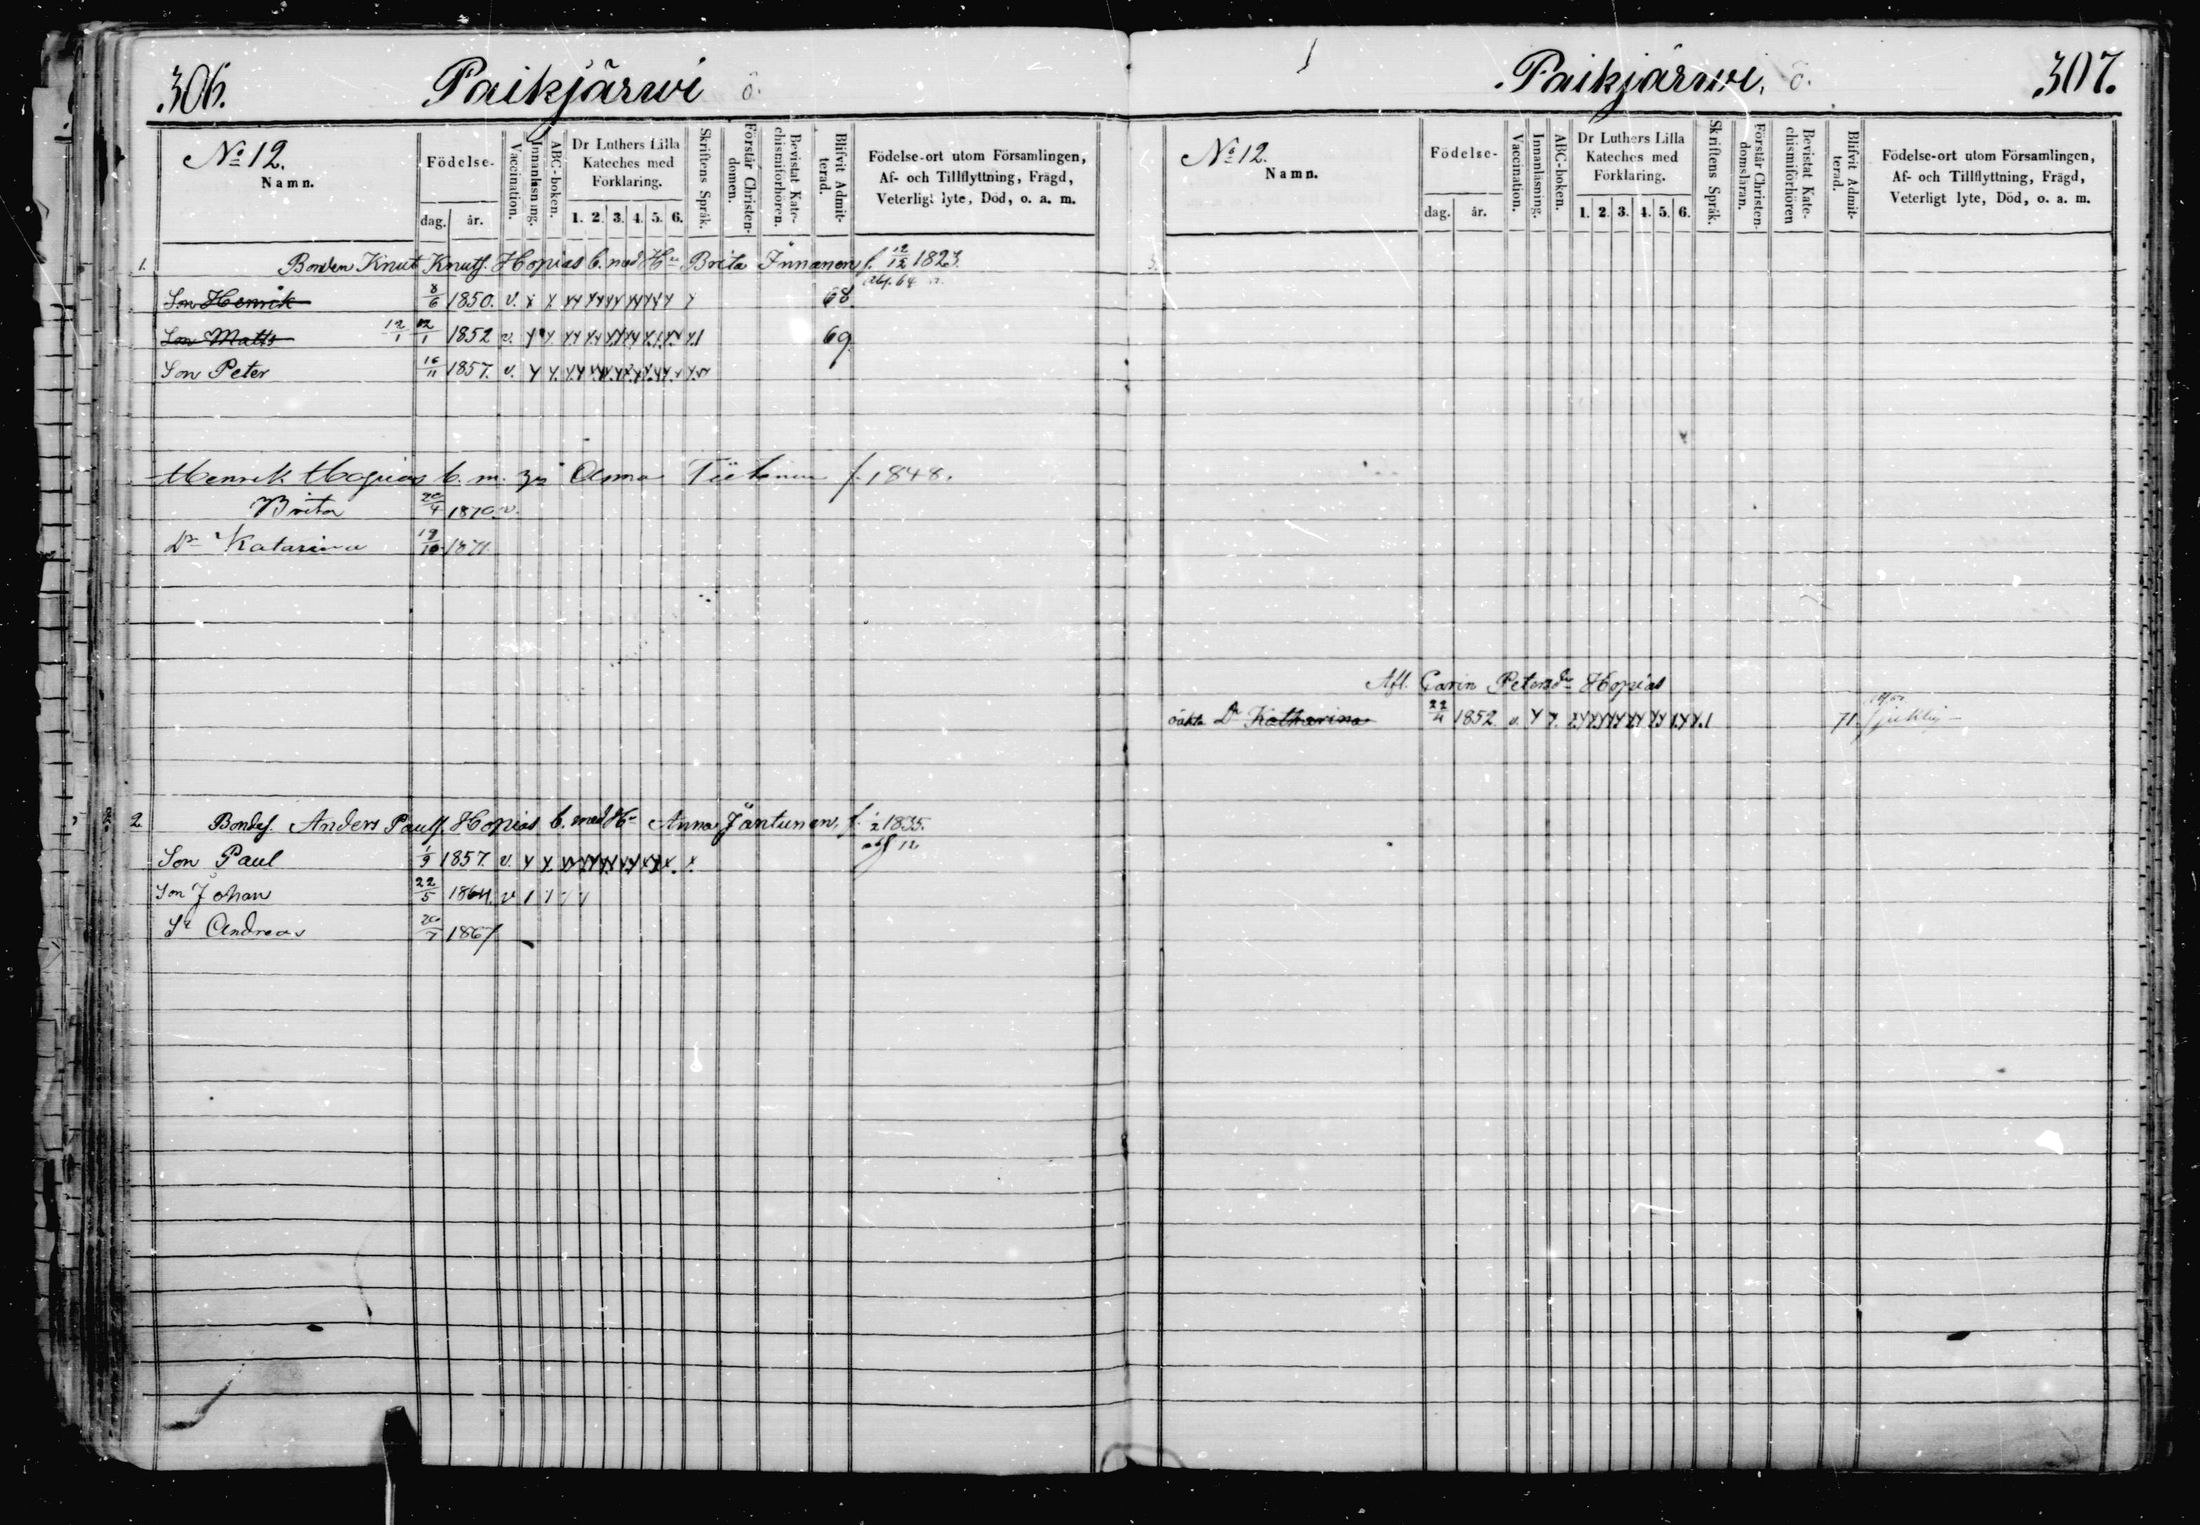 306. Paikjärwi ö.
No 12.
Namn.
Födelse-
dag. år.
Vaccination.
Innanläsning.
ABC-boken.
Dr Luthers Lilla
Kateches med
Förklaring.
1. 2. 3. 4. 5. 6.
Skriftens Språk.
Förstår Christen-
domen.
Bevistat Kate-
chismiförhören.
Blifvit Admit-
terad.
Födelse-ort utom Församlingen,
Af- och Tillflyttning, Frägd,
Veterligt lyte, Död, o. a. m.
1. Bonden Knut Knutss. Hopias b. med Hu Brita Innanen f. 12/12 1823.
Son Henrik 8/6 1850. v. x x 68
Son Matts 12/1 12/1 1852 v. 69
Son Peter 16/11 1857. v.
Henrik Hopias b. m. Anna f. 1848.
Brita 20/4 1870. v.
Dr Katarina 19/10 1871
2. Bondes. Anders Paulss. Hopias b. med Hu Anna Jäntunen, f. 1835.
Son Paul 1/9 1857. v.
Son Johan 22/5 1864. v
Sn Andreas 20/7 1867
Paikjärwi. ö. 307.
No 12.
Namn.
Födelse-
dag. år.
Vaccination.
Innanläsning.
ABC-boken.
Dr Luthers Lilla
Kateches med
Förklaring.
1. 2. 3. 4. 5. 6.
Skriftens Språk.
Förstår Christen-
domsläran.
Bevistat Kate-
chismiförhören
Blifvit Admit-
terad.
Födelse-ort utom Församlingen,
Af- och Tillflyttning, Frägd,
Veterligt lyte, Död, o. a. m.
3.
Afl. Carin Petersdr Hopias
oäkta Dr Katharina 22/4 1852 v. 71.